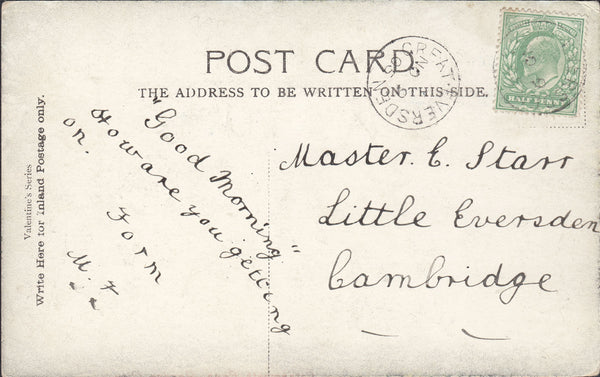 POST CARD.
THE ADDRESS TO BE WRITTEN ON THIS SIDE.
GREAT EVERSDEN
HALFPENNY
Valentine's Series
Write Here for Inland Postage only.
"Good Morning"
How are you getting
on.
Form
M. F
Master. E. Starr
Little Eversden
Cambridge